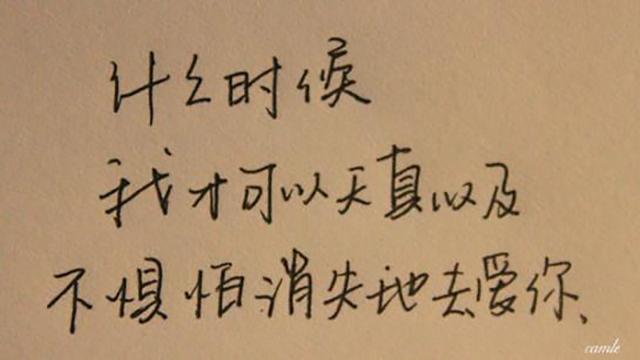 什么时候
我才可以天真以及
不惧怕消失地去爱你、
camle